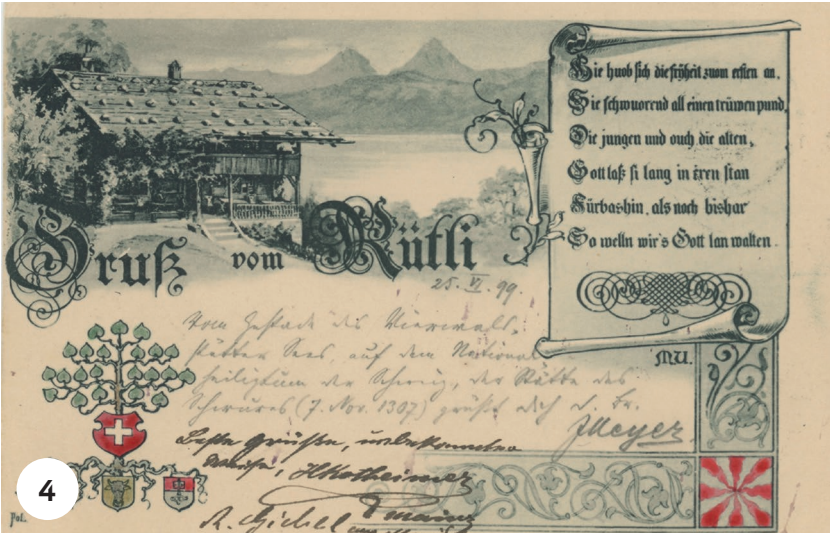 Hie huob sich die fryheit zuom ersten an,
Sie schwuorend all einen trüwen pund,
Die jungen und ouch die alten,
Gott laß si lang in eren stan
Fürbashin, als noch bishar
So welln wir's Gott lan walten.
Gruß vom Rütli
25. VI. 99.
Vom Gestade des Vierwald-
stätter Sees, auf dem National
heiligtum der Schweiz, der Stätte des
Schwures (7. Nov. 1307) grüßt dich d. Br.
JMeyer.
MU.
Beste Grüße, unbekannter
weise,
4